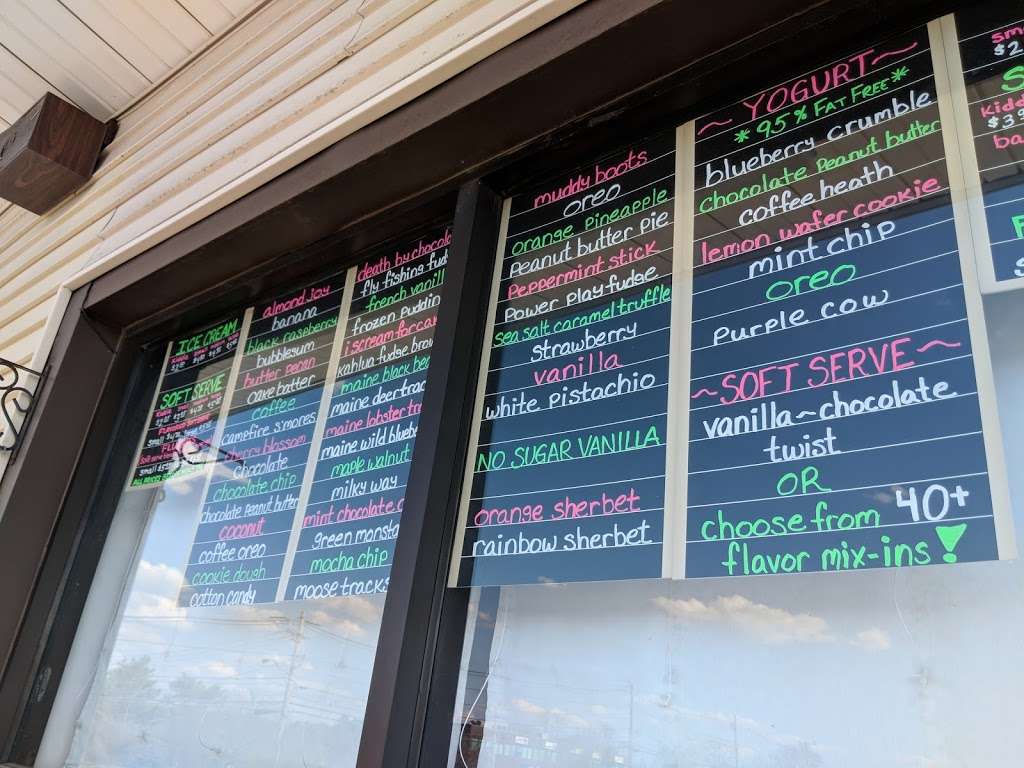 ICE CREAM
Kiddie
SOFT SERVE
Kiddie
small
almond joy
banana
black raspberry
bubblegum
butter pecan
cake batter
coffee
campfire s'mores
cherry blossom
chocolate
chocolate chip
chocolate peanut butter
coconut
coffee oreo
cookie dough
cotton candy
death by chocola
fly fishing fud
french vanill
frozen puddin
i scream for car
kahlua fudge brow
maine black be
maine deer trac
maine lobster tr
maine wild blueb
maple walnut
milky way
mint chocolate c
green monste
mocha chip
moose tracks
muddy boots
oreo
orange pineapple
peanut butter pie
peppermint stick
power play fudge
sea salt caramel truffle
strawberry
vanilla
white pistachio
NO SUGAR VANILLA
orange sherbet
rainbow sherbet
~YOGURT~
*95% FAT FREE*
blueberry crumble
chocolate peanut butter
coffee heath
lemon wafer cookie
mint chip
oreo
purple cow
~SOFT SERVE~
vanilla~chocolate
twist
OR
choose from 40+
flavor mix-ins!
sm
$2
S
Kidd
$3
ba